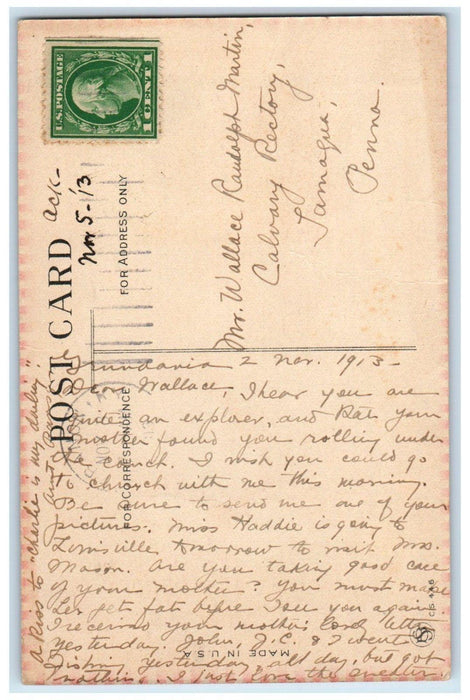 U.S. POSTAGE
1 CENT 1
POST CARD
FOR ADDRESS ONLY
FOR CORRESPONDENCE
ack-
Nov 5-'13
Mr. Wallace Randolph Martin,
Calvary Rectory,
Tamaqua,
Penna.
2 Nov. 1913-
Dear Wallace, I hear you are
quite an explorer, and that your
mother found you rolling under
the church. I wish you could go
to church with me this morning.
Be sure to send me one of your
pictures. Miss Haddie is going to
Louisville tomorrow to visit Mrs.
Mason. Are you taking good care
of your mother? You must make
her get fat before I see you again.
I received your mother's letter
yesterday. John, J.C. & I went
fishing yesterday, all day, but got
nothin. I just love the
A kiss to "Charlie is my darling"
Aunt
MADE IN U.S.A.
CS 446